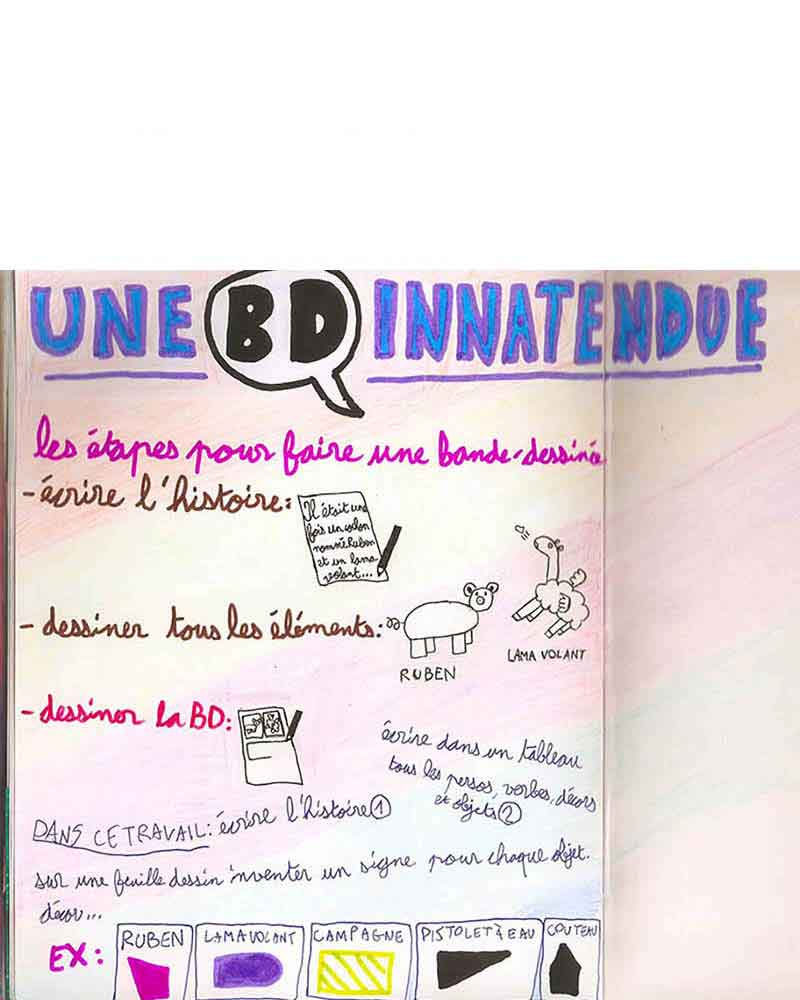 UNE BD INNATENDUE
les étapes pour faire une bande-dessinée
- écrire l'histoire:
Il était une
fois un cochon
nommé Ruben
et un lama
volant...
- dessiner tous les éléments:
RUBEN
LAMA VOLANT
- dessiner la BD:
écrire dans un tableau
tous les persos, verbes, décors
et objets ②
DANS CE TRAVAIL: écrire l'histoire ①
sur une feuille dessin inventer un signe pour chaque objet.
décor...
EX:
RUBEN
LAMA VOLANT
CAMPAGNE
PISTOLET À EAU
COUTEAU